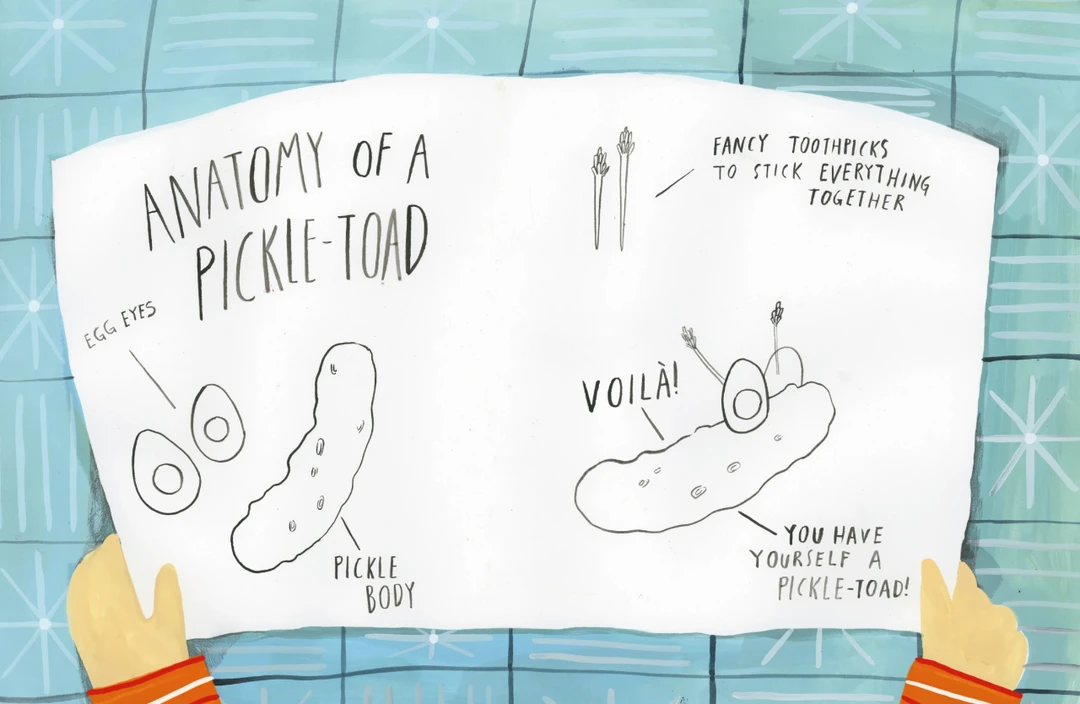 ANATOMY OF A
PICKLE-TOAD
EGG EYES
PICKLE
BODY
FANCY TOOTHPICKS
TO STICK EVERYTHING
TOGETHER
VOILÀ!
YOU HAVE
YOURSELF A
PICKLE-TOAD!